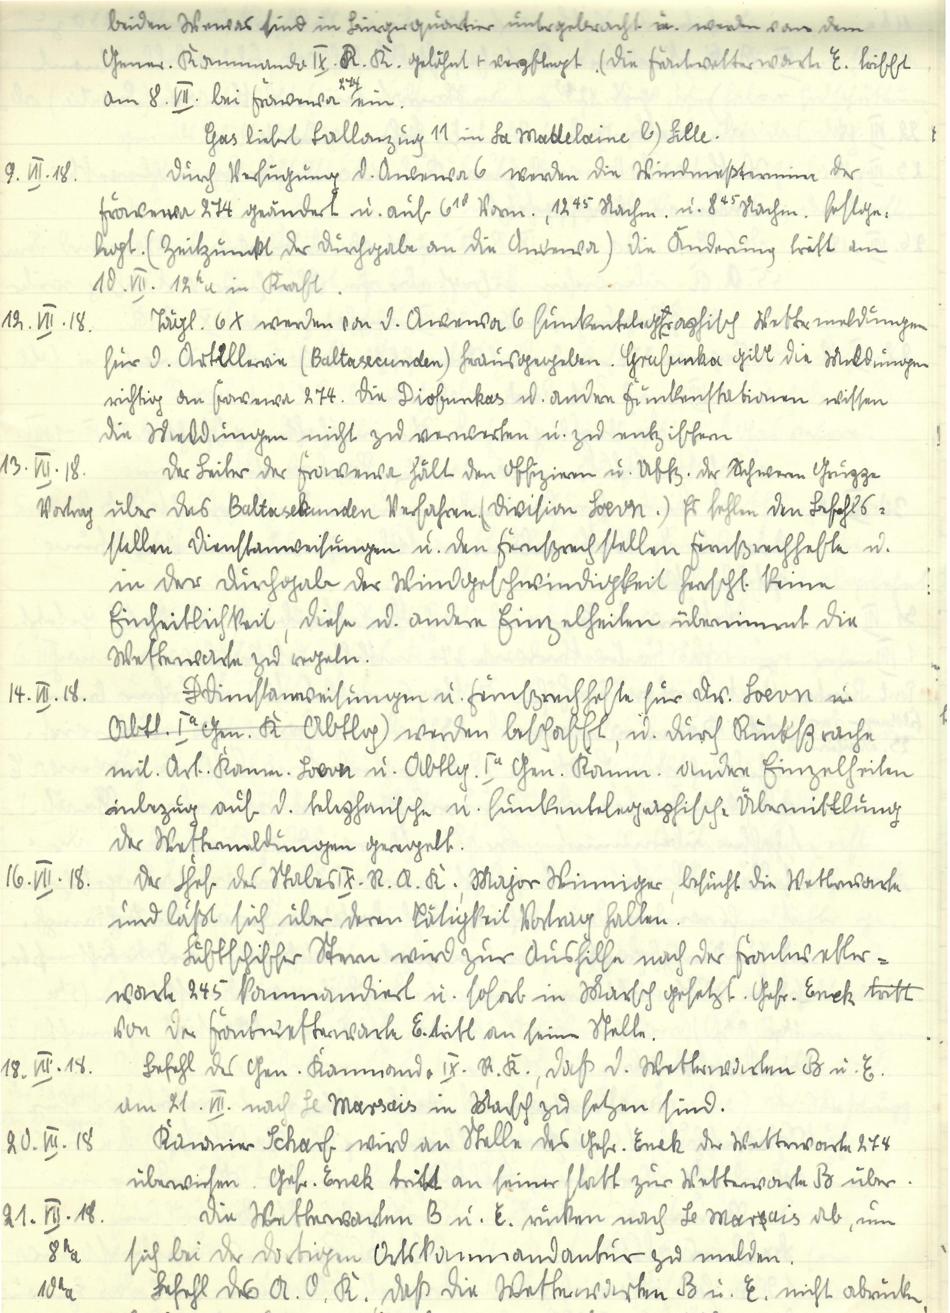 beiden Wewas sind in Bürgerquartier untergebracht u. werden von dem
Gener. Kommando IX. R. K. gelöhnt + verpflegt. (Die Frontwetterwarte E. trifft
am 8. VII. bei Frawewa 274 ein.
Gas liefert Ballonzug 11 in La Madelaine b) Lille.
9. VII. 18. Durch Verfügung d. Awewa 6 werden die Windmeßtermine der
Frawewa 274 geändert u. auf 6 10 Vorm., 12 45 Nachm. u. 8 45 Nachm. festge-
legt. (Zeitpunkt der Durchgabe an die Awewa) Die Änderung tritt am
10. VII. 12 h a in Kraft.
12. VII. 18. Tägl. 6 x werden von d. Awewa 6 funkentelegraphisch Wettermeldungen
für d. Artillerie (Baltasecunden) herausgegeben. Grofunka gibt die Meldungen
richtig an Frawewa 274. Die Diofunkas u. andere Funkenstationen wissen
die Meldungen nicht zu verwerten u. zu entziffern
13. VII. 18. Der Leiter der Frawewa hält den Offizieren u. Uffz. der Schweren Gruppe
Vortrag über das Baltasekunden Verfahren. (Division Loevn.) Es fehlen den Befehls-
stellen Dienstanweisungen u. den Fernsprechstellen Fernsprechhefte u.
in der Durchgabe der Windgeschwindigkeit herscht keine
Einheitlichkeit, diese u. andere Einzelheiten übernimmt die
Wetterwarte zu regeln.
14. VII. 18. Dienstanweisungen u. Fernsprechhefte für Div. Loevn u
Abtl. Ia Gen. K Abtlg) werden beschafft, u. durch Rücksprache
mit Art. Komm. Loevn u. Abtlg. Ia Gen. Komm. andere Einzelheiten
inbezug auf d. telephonische u. funkentelegraphische Übermittlung
der Wettermeldungen geregelt.
16. VII. 18. Der Chef des Stabes IX. R. A. K., Major Winniger, besucht die Wetterwarte
und läßt sich über deren Tätigkeit Vortrag halten.
Luftschiffer Stern wird zur Aushilfe nach der Frontwetter-
warte 245 kommandiert u. sofort in Marsch gesetzt. Gefr. Enck tritt
von der Frontwetterwarte E. tritt an seine Stelle.
18. VII. 18. Befehl des Gen. Kommando IX. R. K., daß d. Wetterwarten B u. E.
am 21. VII. nach Le Marsais in Marsch zu setzen sind.
20. VII. 18 Kanonier Scharf wird an Stelle des Gefr. Enck der Wetterwarte 274
überwiesen. Gefr. Enck tritt an seiner statt zur Wetterwarte B über.
21. VII. 18. Die Wetterwarten B u. E. rücken nach Le Marsais ab, um
8 h a sich bei der dortigen Ortskommandantur zu melden.
10 h a Befehl des A. O. K. daß die Wetterwarten B u. E. nicht abrücken,